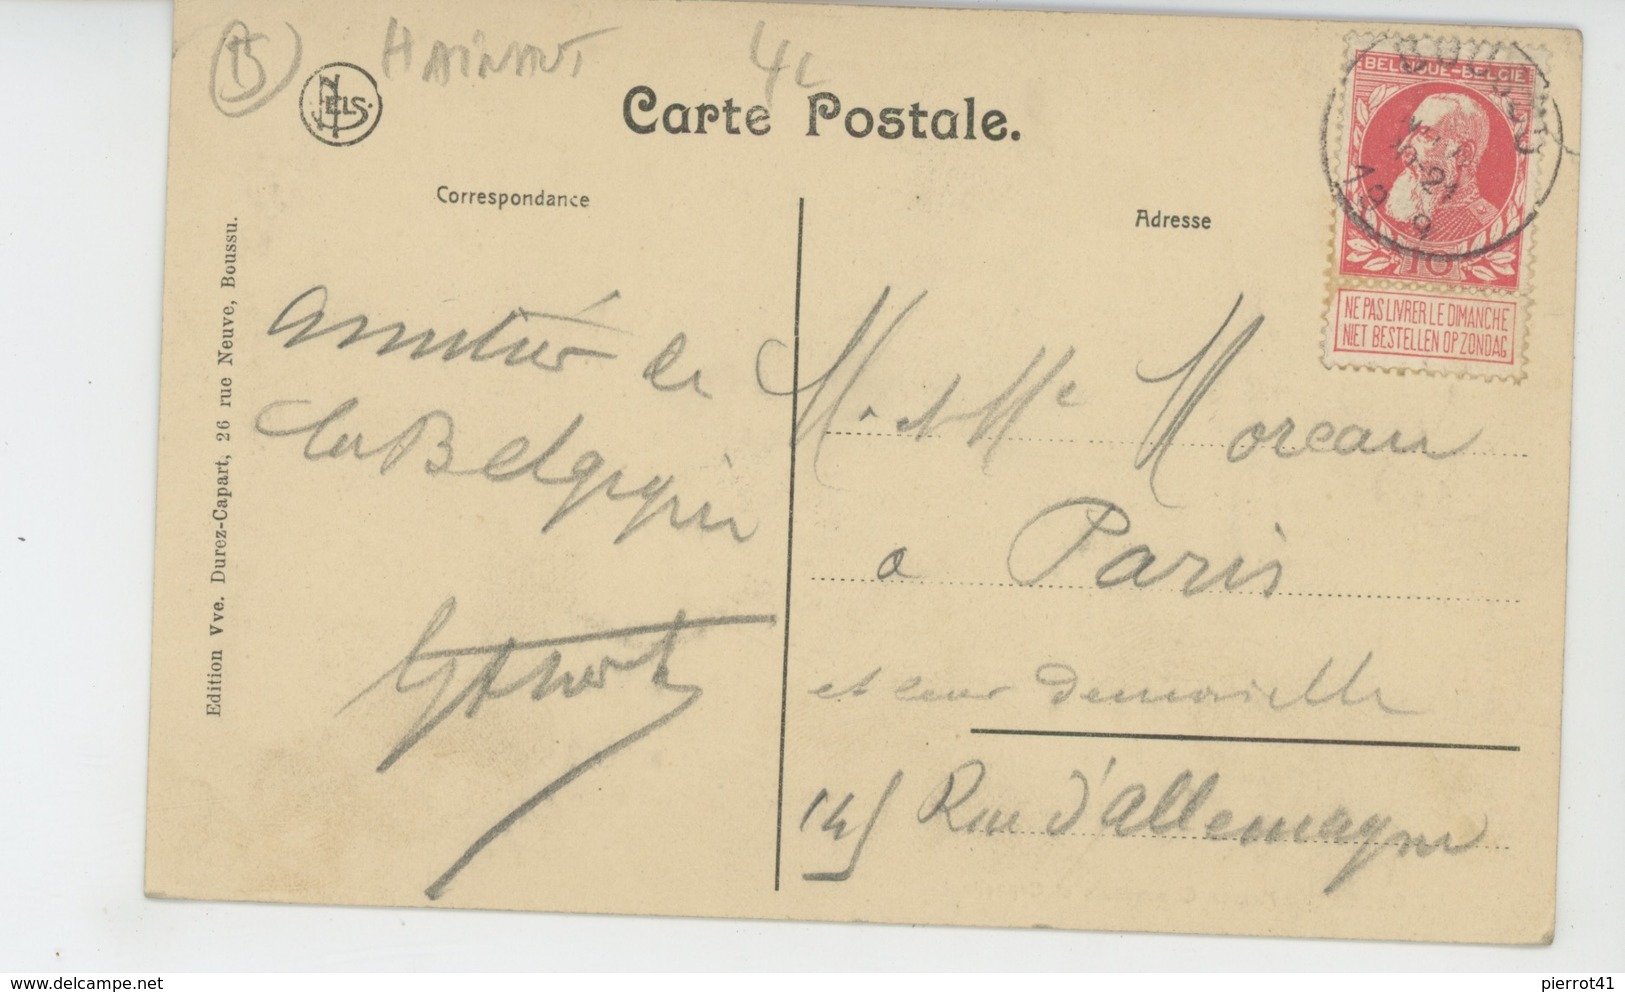 B
HAINAUT
4L
NELS
Carte Postale.
Correspondance
Adresse
Edition Vve. Durez-Capart, 26 rue Neuve, Boussu.
BELGIQUE-BELGIE
10
NE PAS LIVRER LE DIMANCHE
NIET BESTELLEN OP ZONDAG
amitié de
la Belgique
M. et Me Moreau
a Paris
et leur demoiselle
145 Rue d'Allemagne
pierrot41